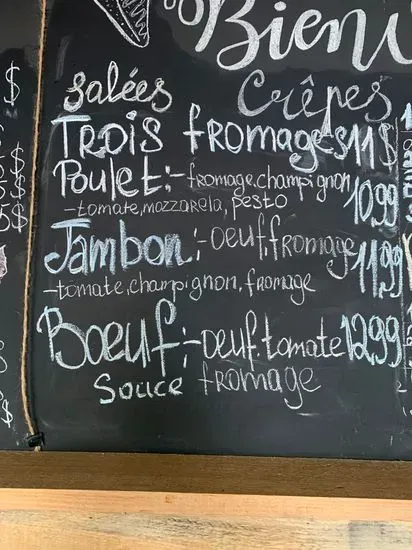 Bienv
salées Crêpes
Trois fromages 11$
Poulet:-fromage, champignon 10,99
-tomate, mozzarela, pesto
Jambon:-oeuf, fromage 11,99
-tomate, champignon, fromage
Boeuf:-oeuf, tomate 12,99
Souce fromage